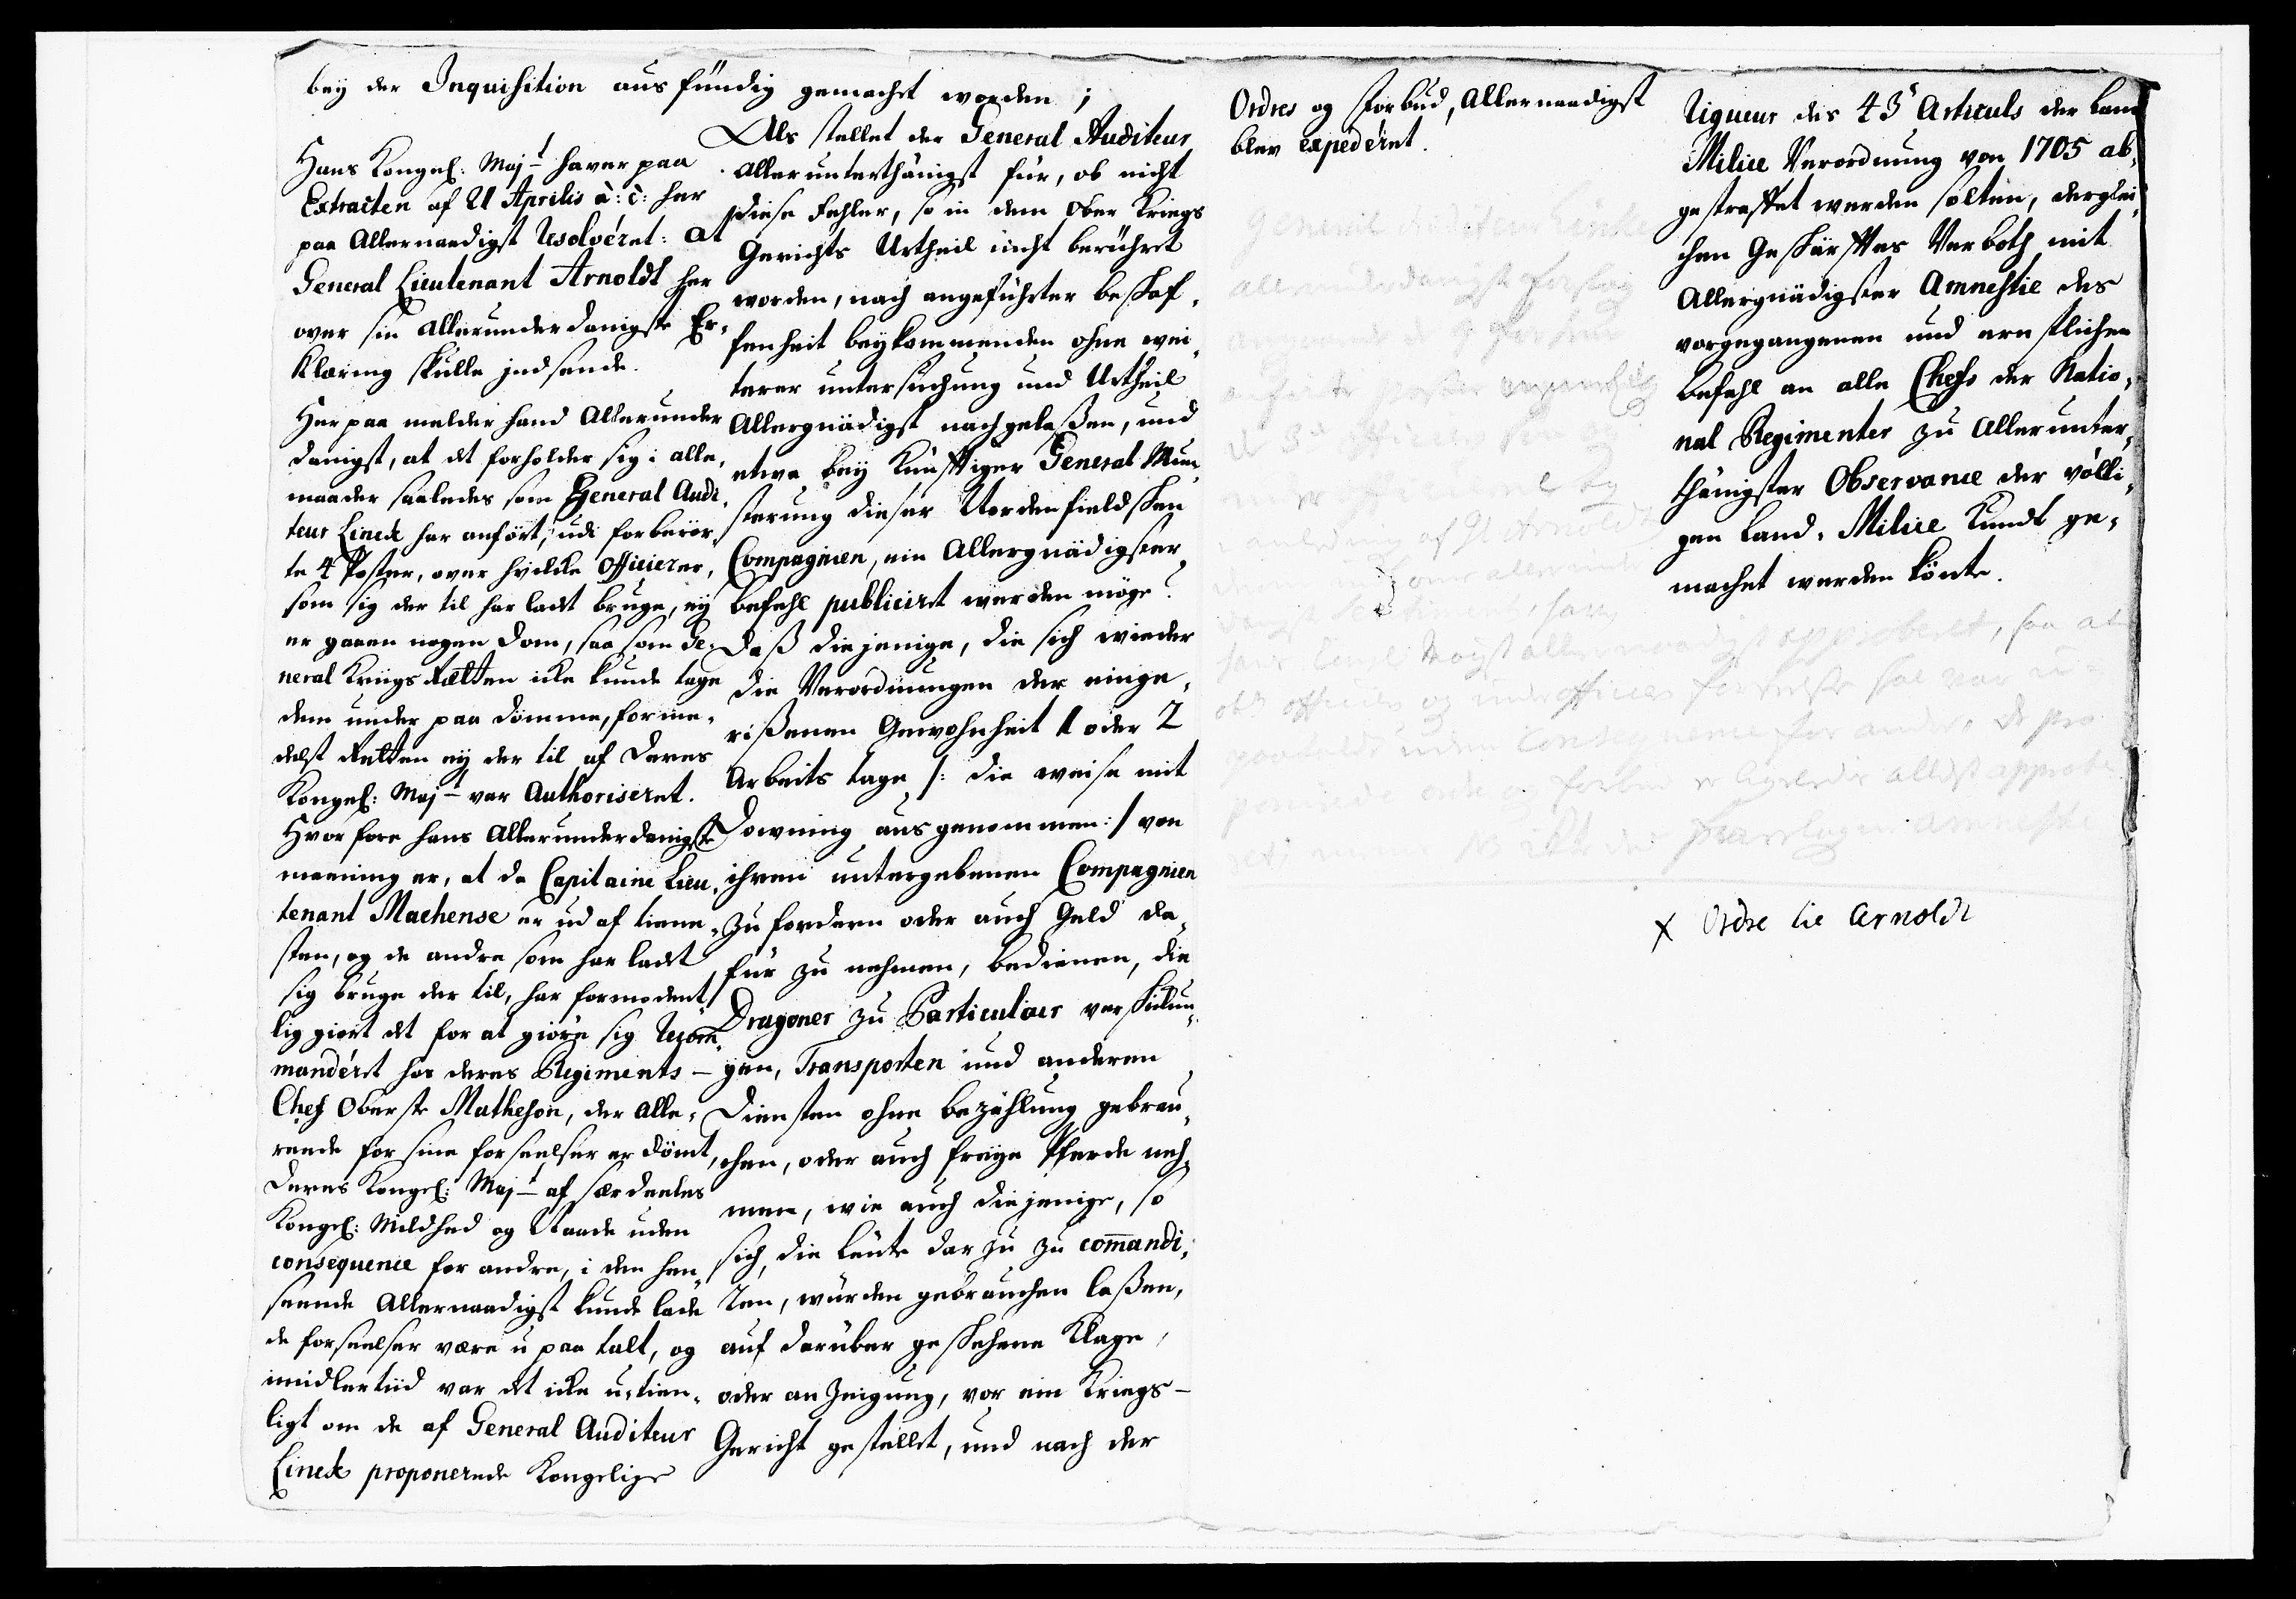 bey der Inquisition ausfündig gemacht worden;
Hans Kongel: Maj.t haver paa
Extracten af 21 Aprilis a: c: her
paa Allernaadigst Resolveret: at
General Lieutenant Arnoldt her
over sin allerunderdanigste Er-
klæring skulle indsende.
Her paa melder hand Allerunder
danigst, at det forholder sig i alle
maader saaledes som General Audi
teur Linck har anført, udi forberör-
te 4 Poster, over hvilcke Officierer,
som sig der til har ladt bruge, ey
er gaaen nogen Dom, saa som Ge-
neral KriigsRætten icke kunde tage
dem under paa dömme, forme-
delst Retten ey der til af Deres
Kongel: Maj.t var Authoriseret.
Hvorfore hans Allerunderdanigste
meening er, at da Capitaine Lieu-
tenant Machense er ud af tiene-
sten, og de andre som har ladt
sig bruge der til, har formodent
lig giort det for at giöre sig Recom-
manderet hos deres Regiments-
Chef Oberste Matheson, der alle-
reede for sine forseelser er dömt,
Deres Kongel: Maj.t af sær deeles
Kongel: Mildhed og Naade uden
consequence for andre, i den hen
seende Allernaadigst kunde lade
de forseelser være upaatalt, og
imidlertiid var det icke u-tien-
ligt om de af General Auditeur
Linck proponerede Kongelige
Als stellet der General Auditeur
Allerunterthänigst für, ob nicht
diese Fehler, so in dem Ober Kriegs
Gerichts Urtheil nicht berühret
worden, nach angeführter beschaf-
fenheit beykommenden ohne wei-
terer untersuchung und Urtheil
Allergnädigst nachgelaßen, und
etwa bey künfftiger General Mun-
sterung dieser Nordenfieldschen
Compagnien, ein Allergnädigster
befehl publiciret werden möge?
daß diejenige, die sich wieder
die Verordnungen der einge-
rißenen Gewohnheit 1 oder 2
Arbeits tage /: die weise mit
Downing ausgenommen :/ von
ihren untergebenen Compagnien
zu fordern oder auch Geld da-
für zu nehmen, bedienen, die
Dragoner zu Particulaer verschickun-
gen, Transporten und anderen
Diensten ohne bezahlung gebrau-
chen, oder auch freye Pferde neh-
men, wie auch diejenige, so
sich, die Leute dar zu zu commandi-
ren, würden gebrauchen laßen,
auf darüber geschehene Klage
oder anzeigung, vor ein Kriegs-
Gericht gestellet, und nach der
Ordres og Forbud, Allernaadigst
blev expederet.
General Auditeur Lincke
allerunderdanigst forslag
af Gl Arnoldt
approberet, saa at
officier og underofficer
uden Consequence for andre, de pro
allst approbe
amnestie
Rigueur des 43. Articuls der Land
Milice Verordnung von 1705 ab-
gestraffet werden solten, derglei-
chen Geschärfftes Verboth mit
Allergnädigster Amnestie des
vorgegangenen und ernstlichen
befehl an alle Chefs der Natio-
nal Regimenter zu Allerunter-
thänigster Observance der völli-
gen Land-Milice kundt ge-
machet werden könte.
x Ordre til Arnoldt